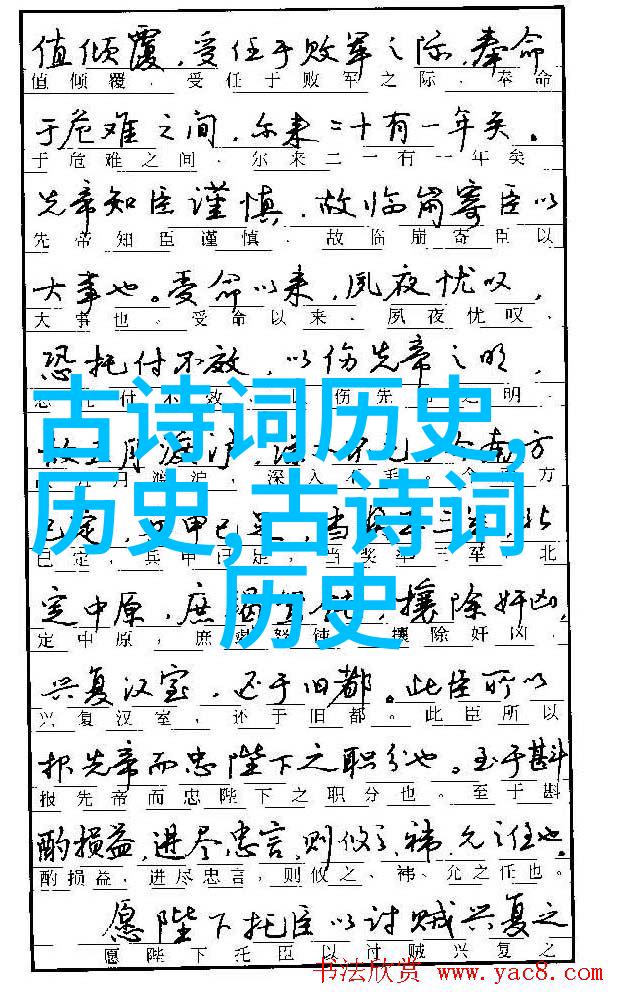 值倾覆，受任于败军之际，奉命
值倾覆，受任于败军之际，奉命
于危难之间，尔来二十有一年矣。
于危难之间，尔来二一有一年矣
先帝知臣谨慎，故临崩寄臣以
先帝知臣谨慎，故临崩寄臣以
大事也。受命以来，夙夜忧叹，
大事也。受命以来，夙夜忧叹，
恐托付不效，以伤先帝之明，
付不效 伤先 明
古诗词历史,
月渡泸，深入不毛。今南方
月渡泸，深入不毛。今南方
历史,古诗词
已定，甲已足，当 三军，北
已定，兵甲已足，当奖率三军，北
历史
定中原，庶竭 钝，攘除奸凶，
定中原，庶竭驽钝，攘除奸凶，
兴复汉室，还于旧都。此臣所以
兴复汉室，还于旧都。此臣所以
报先帝而忠陛下之职分也。至于斟
报先帝而忠陛下之职分也。至于斟
酌损益，进尽忠言，则攸之、祎、允之任也。
酌损益，进尽忠言，则攸之、祎、允之任也。
愿陛下托臣以讨贼兴复之
愿陛下托臣以讨贼兴复之
书法欣赏 www.yac8.com